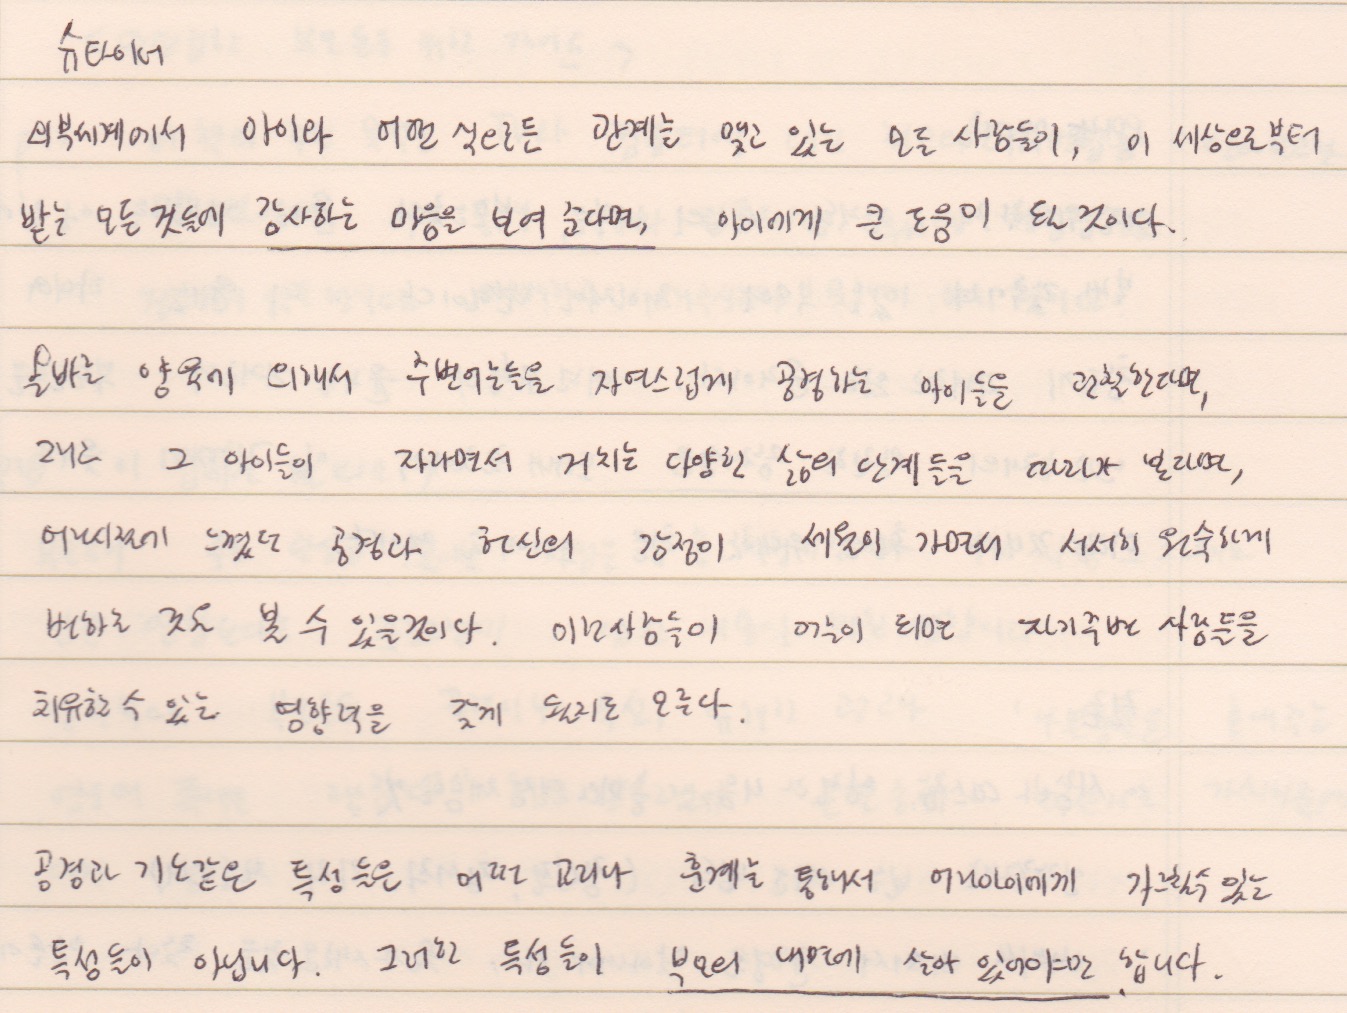 슈타이너
외부세계에서 아이와 어떤 식으로든 관계를 맺고 있는 모든 사람들이, 이 세상으로부터
받는 모든 것들에 감사하는 마음을 보여 준다면, 아이에게 큰 도움이 된 것이다.
올바른 양육에 의해서 주변어른들을 자연스럽게 공경하는 아이들을 관찰한다면,
그리고 그 아이들이 자라면서 거치는 다양한 삶의 단계들을 따라가 본다면,
어린시절에 느꼈던 공경과 헌신의 감정이 세월이 가면서 서서히 완숙하게
변하는 것도 볼 수 있을것이다. 이런사람들이 어른이 되면 자기주변 사람들을
치유할 수 있는 영향력을 갖게 될지도 모른다.
공경과 기도같은 특성들은 어떤 교리나 훈계를 통해서 어린아이에게 가르칠수 있는
특성들이 아닙니다. 그러한 특성들이 부모의 내면에 살아 있어야만 합니다.